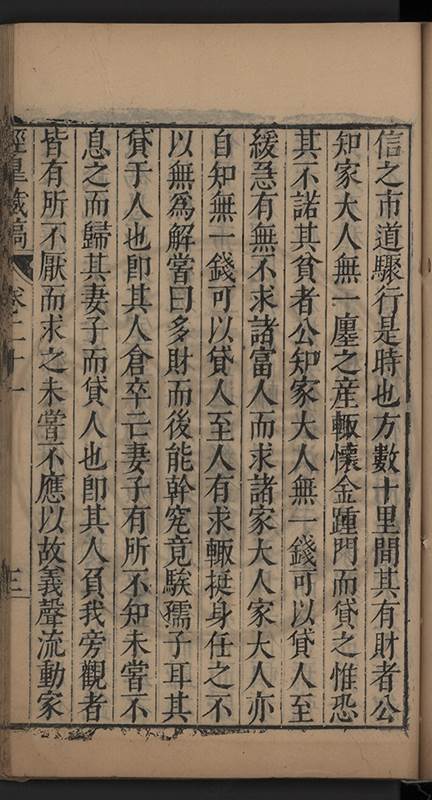 信之市道驟行是時也方數十里間其有財者公
知家大人無一廛之産輙懷金踵門而貸之惟恐
其不諾其貧者公知家大人無一錢可以貸人至
緩急有無不求諸富人而求諸家大人家大人亦
自知無一錢可以貸人至人有求輙挺身任之不
以無為解嘗曰多財而後能幹究竟騃孺子耳其
貸于人也卽其人倉卒亡妻子有所不知未嘗不
息之而歸其妻子而貸人也卽其人負我旁觀者
皆有所不厭而求之未嘗不應以故義聲流動家
經皇藏稿 卷二十一 三